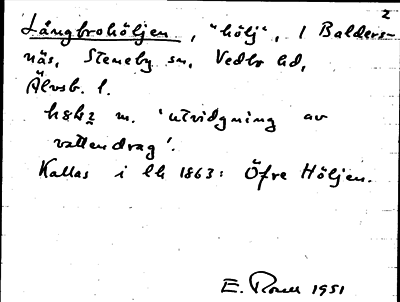 2
Långbrohöljen, "hölj", i Balders-
näs, Steneby sn, Vedbo hd,
Älvsb. l.
m. 'utvidgning av
vattendrag'.
Kallas i lh 1863: Öfre Höljen.
E. 1951